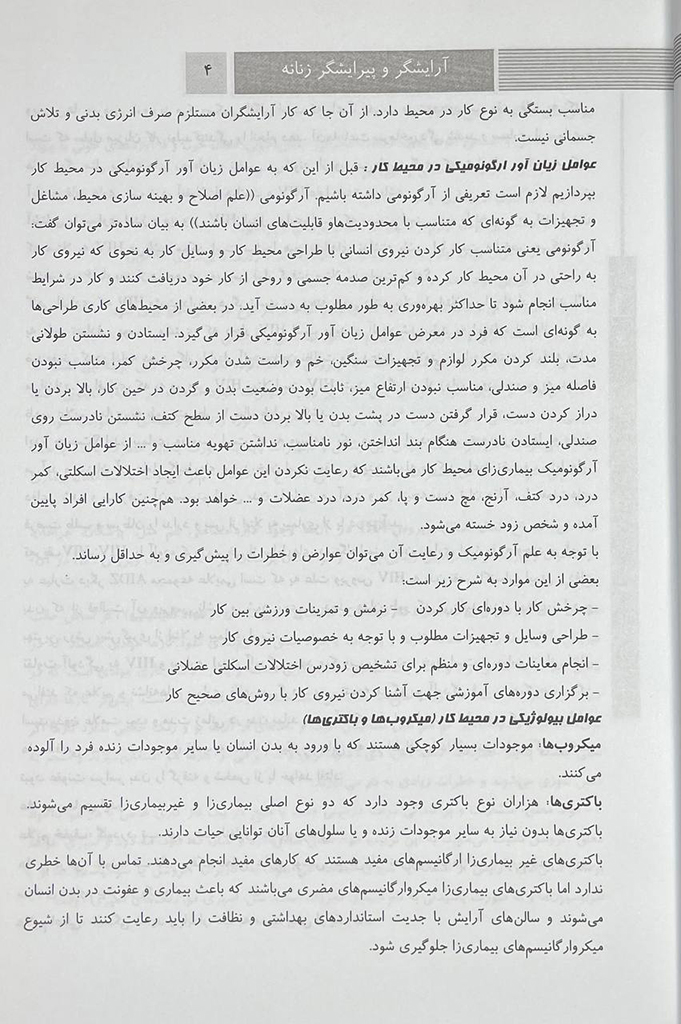 آرایشگر و پیرایشگر زنانه
۴
مناسب بستگی به نوع کار در محیط دارد. از آن جا که کار آرایشگران مستلزم صرف انرژی بدنی و تلاش
جسمانی نیست.
عوامل زیان آور ارگونومیکی در محیط کار : قبل از این که به عوامل زیان آور آرگونومیکی در محیط کار
بپردازیم لازم است تعریفی از آرگونومی داشته باشیم. آرگونومی ((علم اصلاح و بهینه سازی محیط، مشاغل
و تجهیزات به گونه‌ای که متناسب با محدودیت‌هاو قابلیت‌های انسان باشند)) به بیان ساده‌تر می‌توان گفت:
آرگونومی یعنی متناسب کار کردن نیروی انسانی با طراحی محیط کار و وسایل کار به نحوی که نیروی کار
به راحتی در آن محیط کار کرده و کم‌ترین صدمه جسمی و روحی از کار خود دریافت کنند و کار در شرایط
مناسب انجام شود تا حداکثر بهره‌وری به طور مطلوب به دست آید. در بعضی از محیط‌های کاری طراحی‌ها
به گونه‌ای است که فرد در معرض عوامل زیان آور آرگونومیکی قرار می‌گیرد. ایستادن و نشستن طولانی
مدت، بلند کردن مکرر لوازم و تجهیزات سنگین، خم و راست شدن مکرر، چرخش کمر، مناسب نبودن
فاصله میز و صندلی، مناسب نبودن ارتفاع میز، ثابت بودن وضعیت بدن و گردن در حین کار، بالا بردن یا
دراز کردن دست، قرار گرفتن دست در پشت بدن یا بالا بردن دست از سطح کتف، نشستن نادرست روی
صندلی، ایستادن نادرست هنگام بند انداختن، نور نامناسب، نداشتن تهویه مناسب و ... از عوامل زیان آور
آرگونومیک بیماری‌زای محیط کار می‌باشند که رعایت نکردن این عوامل باعث ایجاد اختلالات اسکلتی، کمر
درد، درد کتف، آرنج، مچ دست و پا، کمر درد، درد عضلات و ... خواهد بود. هم‌چنین کارایی افراد پایین
آمده و شخص زود خسته می‌شود.
با توجه به علم آرگونومیک و رعایت آن می‌توان عوارض و خطرات را پیش‌گیری و به حداقل رساند.
بعضی از این موارد به شرح زیر است:
- چرخش کار با دوره‌ای کار کردن - نرمش و تمرینات ورزشی بین کار
- طراحی وسایل و تجهیزات مطلوب و با توجه به خصوصیات نیروی کار
- انجام معاینات دوره‌ای و منظم برای تشخیص زودرس اختلالات اسکلتی عضلانی
- برگزاری دوره‌های آموزشی جهت آشنا کردن نیروی کار با روش‌های صحیح کار
عوامل بیولوژیکی در محیط کار (میکروب‌ها و باکتری‌ها)
میکروب‌ها: موجودات بسیار کوچکی هستند که با ورود به بدن انسان یا سایر موجودات زنده فرد را آلوده
می‌کنند.
باکتری‌ها: هزاران نوع باکتری وجود دارد که دو نوع اصلی بیماری‌زا و غیربیماری‌زا تقسیم می‌شوند.
باکتری‌ها بدون نیاز به سایر موجودات زنده و یا سلول‌های آنان توانایی حیات دارند.
باکتری‌های غیر بیماری‌زا ارگانیسم‌های مفید هستند که کارهای مفید انجام می‌دهند. تماس با آن‌ها خطری
ندارد اما باکتری‌های بیماری‌زا میکروارگانیسم‌های مضری می‌باشند که باعث بیماری و عفونت در بدن انسان
می‌شوند و سالن‌های آرایش با جدیت استانداردهای بهداشتی و نظافت را باید رعایت کنند تا از شیوع
میکروارگانیسم‌های بیماری‌زا جلوگیری شود.